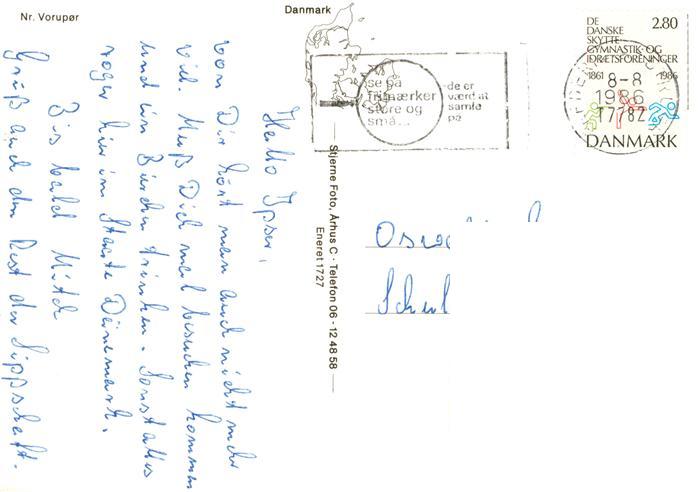 Nr. Vorupør
Danmark
Hallo Ipsen,
von Dir hört man auch nicht mehr
viel. Muß Dich mal besuchen kommen
und ein Bierchen trinken. Sonst alles
roger hier im Staate Dänemark.
Bis bald
Gruß auch den Rest der Sippschaft.
Stjerne Foto, Århus C · Telefon 06 - 12 48 58
Eneret 17/27
se på
frimærker
store og
små...
- de er
værd at
samle
på
DE
DANSKE
SKYTTE
GYMNASTIK- OG
IDRÆTSFORENINGER
2.80
1861
1986
DANMARK
8-8
1986